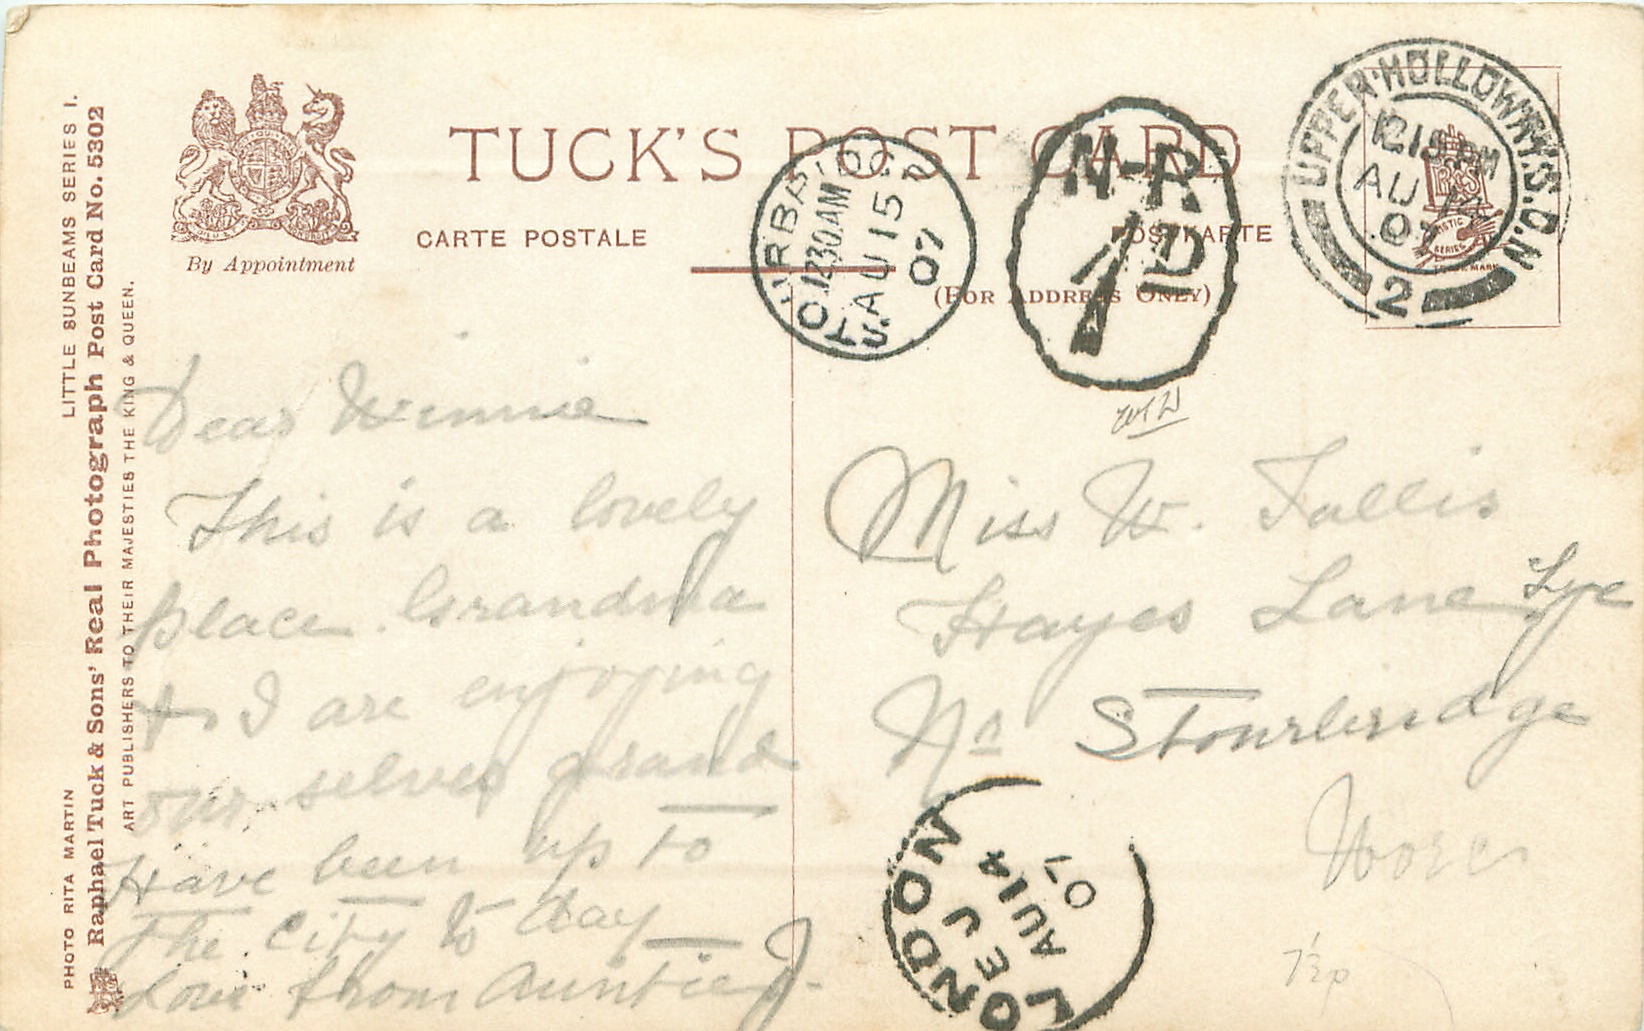 LITTLE SUNBEAMS SERIES I.
PHOTO RITA MARTIN
Raphael Tuck & Sons' Real Photograph Post Card No. 5302
ART PUBLISHERS TO THEIR MAJESTIES THE KING & QUEEN.
By Appointment
TUCK'S POST CARD
CARTE POSTALE
POSTKARTE
(FOR ADDRESS ONLY)
STOURBRIDGE
12 30 AM
AU 15
07
N-R
1D
UPPER HOLLOWAY.S.O.N
12 15 PM
AU 14
07
2
Dear Winnie
This is a lovely
place. Grandma
& I are enjoying
our selves grand
Have been up to
the City to day
Love from Auntie J.
Miss W. Tallis
Hayes Lane Lye
Nr Stourbridge
Worc
LONDON
E J
AU 14
07
7½p